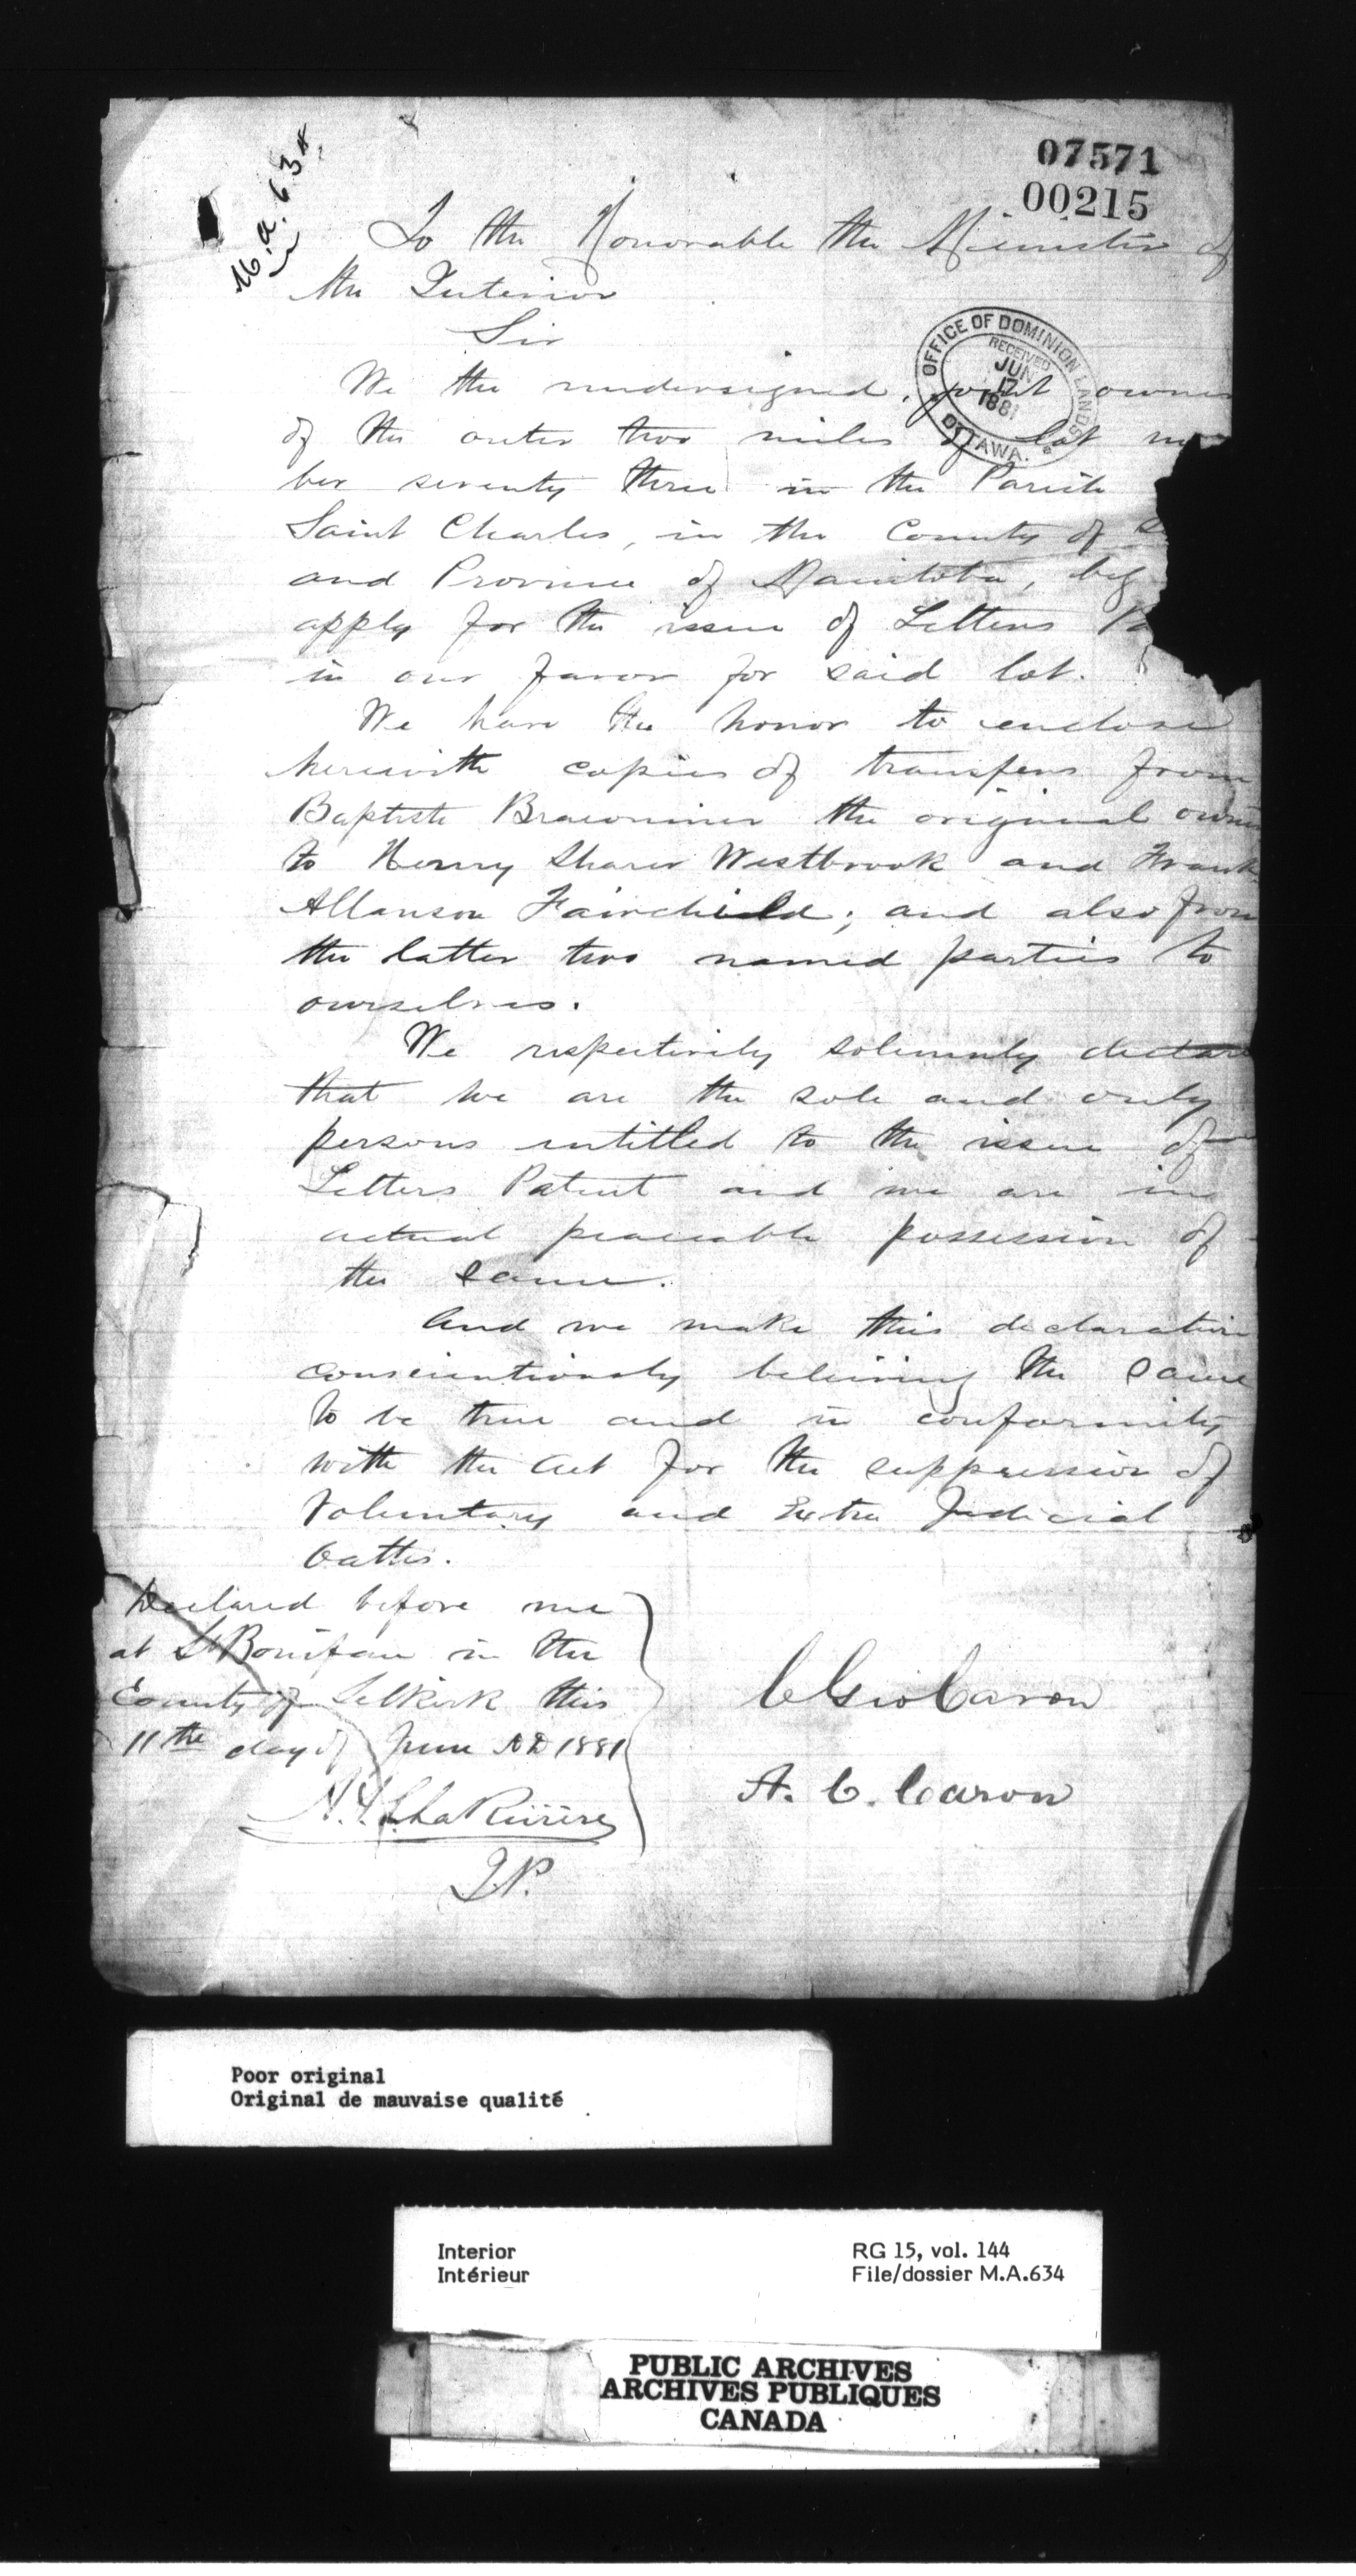 07571
00215
M.A. 634
To the Honorable the Minister of
the Interior
Sir
OFFICE OF DOMINION LANDS
RECEIVED
JUN
17
1881
OTTAWA.
We the undersigned, joint owner
of the outer two miles of Lot num
ber seventy three in the Parish
Saint Charles, in the County of
and Province of Manitoba, beg
apply for the issue of Letters Pa
in our favor for said lot.
We have the honor to enclose
herewith copies of transfers from
Baptiste the original owner
to Henry Sharer Westbrook and Frank
Allanson Fairchild; and also from
the latter two named parties to
ourselves.
We respectively solemnly declare
that we are the sole and only
persons entitled to the issue of
Letters Patent and we are in
actual peaceable possession of
the same.
And we make this declaration
conscientiously believing the same
to be true and in conformity
with the Act for the suppression of
Voluntary and Extra Judicial
Oaths.
Declared before me
at St Boniface in the
County of Selkirk this
11the day of June AD 1881
LaRivière
J.P.
C Geo Caron
A. C. Caron
Poor original
Original de mauvaise qualité
Interior
Intérieur
RG 15, vol. 144
File/dossier M.A.634
PUBLIC ARCHIVES
ARCHIVES PUBLIQUES
CANADA